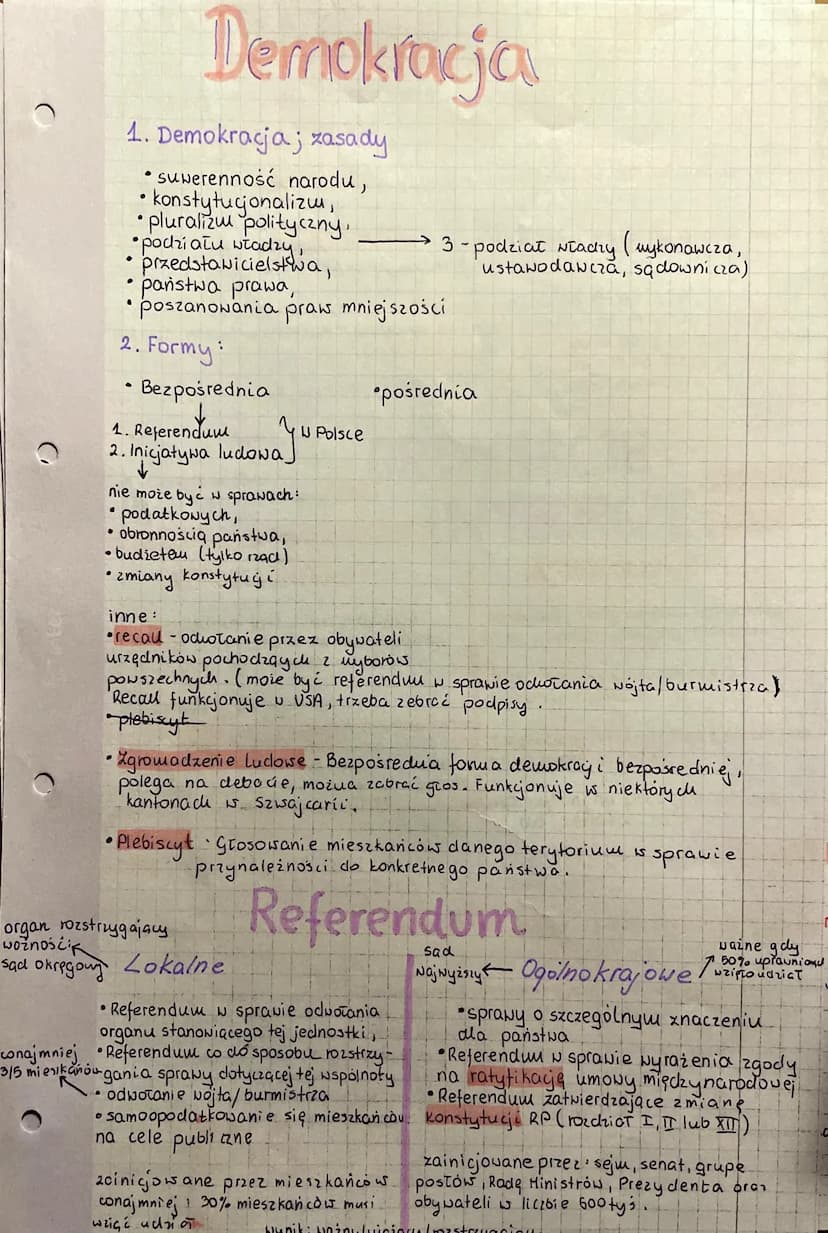 Demokracja
1. Demokracja; zasady
• suwerenność narodu,
• konstytucjonalizm,
• pluralizm polityczny,
• podziału władzy, → 3-podział władzy (wykonawcza,
ustawodawcza, sądownicza)
• przedstawicielstwa,
• państwa prawa,
• poszanowania praw mniejszości
2. Formy:
• Bezpośrednia
• pośrednia
1. Referendum
2. Inicjatywa ludowa
W Polsce
nie może być w sprawach:
• podatkowych,
• obronnością państwa,
• budżetem (tylko rząd)
• zmiany konstytucji
inne:
• recall - odwołanie przez obywateli
urzędników pochodzących z wyborów
powszechnych. (może być referendum w sprawie odwołania wójta/burmistrza)
Recall funkcjonuje w USA, trzeba zebrać podpisy.
• plebiscyt
• Zgromadzenie Ludowe - Bezpośrednia forma demokracji bezpośredniej,
polega na debacie, można zabrać głos. Funkcjonuje w niektórych
kantonach w Szwajcarii.
• Plebiscyt : Głosowanie mieszkańców danego terytorium w sprawie
przynależności do konkretnego państwa.
Referendum
organ rozstrzygający
ważność
sąd okręgowy
Lokalne
• Referendum w sprawie odwołania
organu stanowiącego tej jednostki,
• Referendum co do sposobu rozstrzy-
gania sprawy dotyczącej tej wspólnoty
conajmniej
3/5 mieszkańców
• odwołanie wójta/burmistrza
• samoopodatkowanie się mieszkańców
na cele publiczne
zainicjowane przez mieszkańców
conajmniej : 30% mieszkańców musi
wziąć udział
Sąd
Najwyższy ← Ogólnokrajowe
ważne gdy
50% uprawnionych
wzięło udział
• sprawy o szczególnym znaczeniu
dla państwa
• Referendum w sprawie wyrażenia zgody
na ratyfikację umowy międzynarodowej
• Referendum zatwierdzające zmianę
konstytucji RP (rozdział I, II lub XII)
zainicjowane przez: sejm, senat, grupę
posłów, Radę Ministrów, Prezydenta oraz
obywateli w liczbie 500 tyś.
wynik: